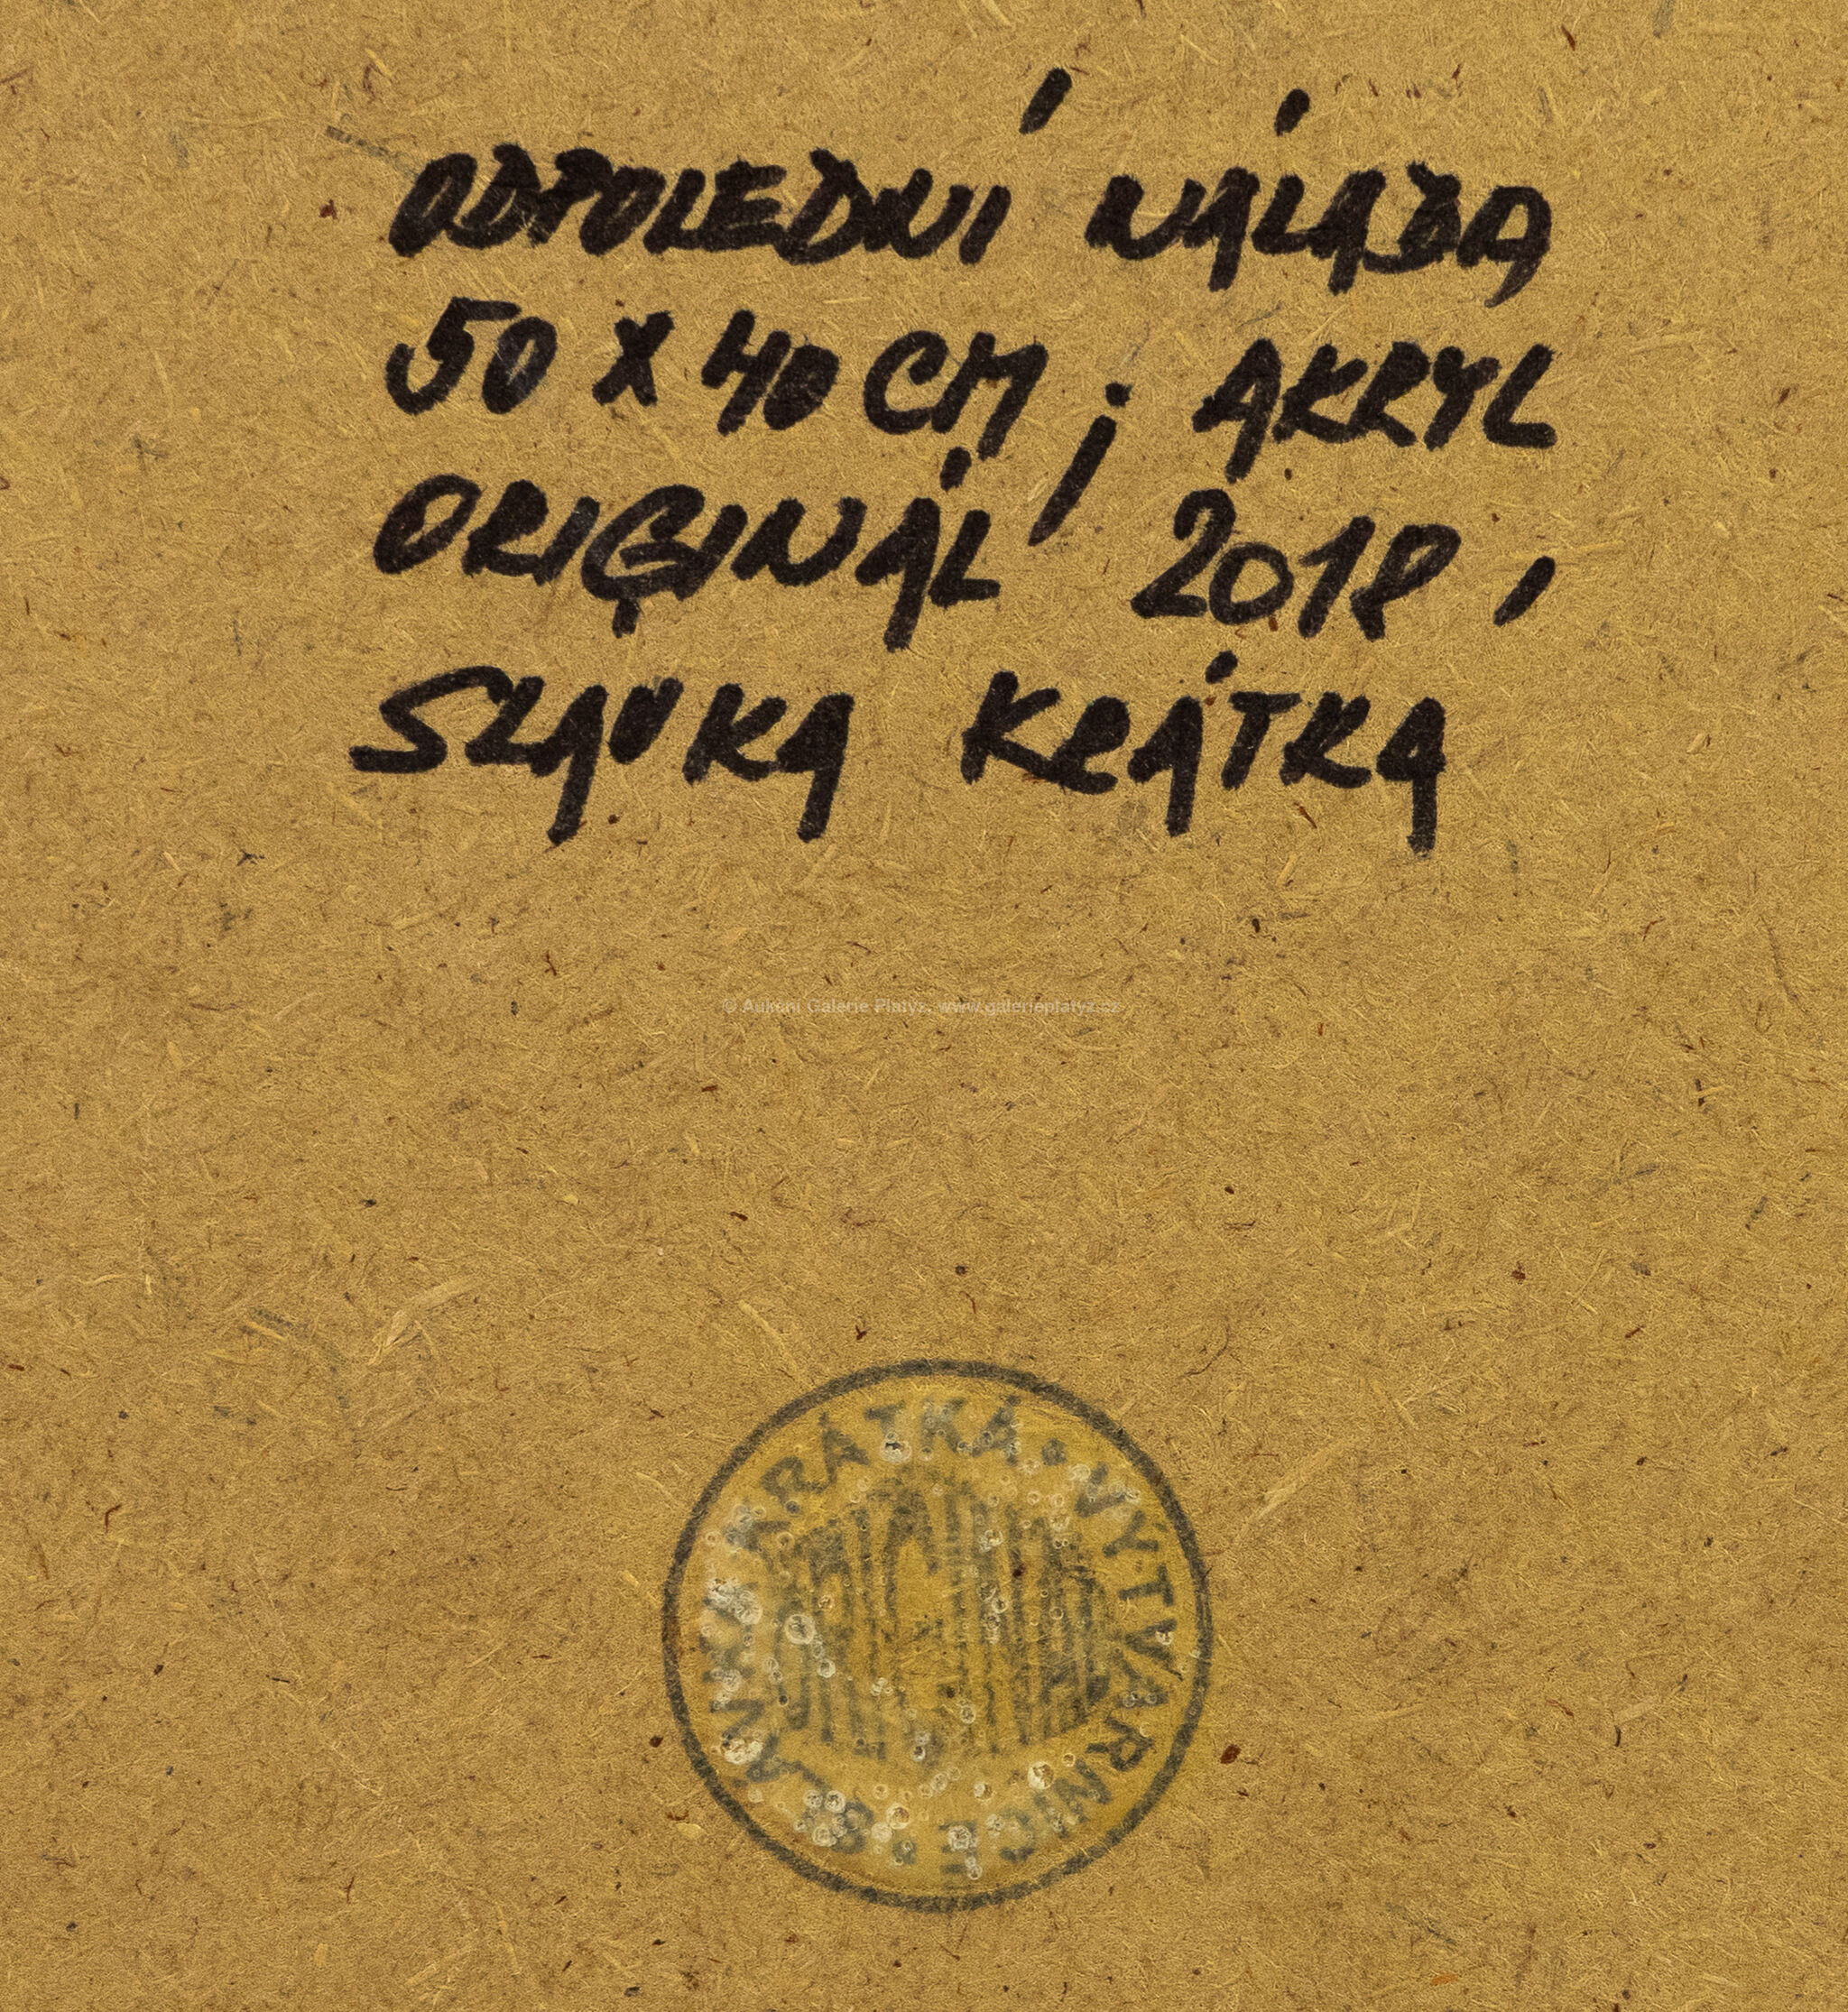 ODPOLEDNÍ NÁLADA
50 X 40 CM, AKRYL
ORIGINÁL, 2018,
SLAVKA KRÁTKÁ
© Aukční Galerie Platýz, www.galerieplatyz.cz
SLÁVKA KRÁTKÁ • VÝTVARNICE •